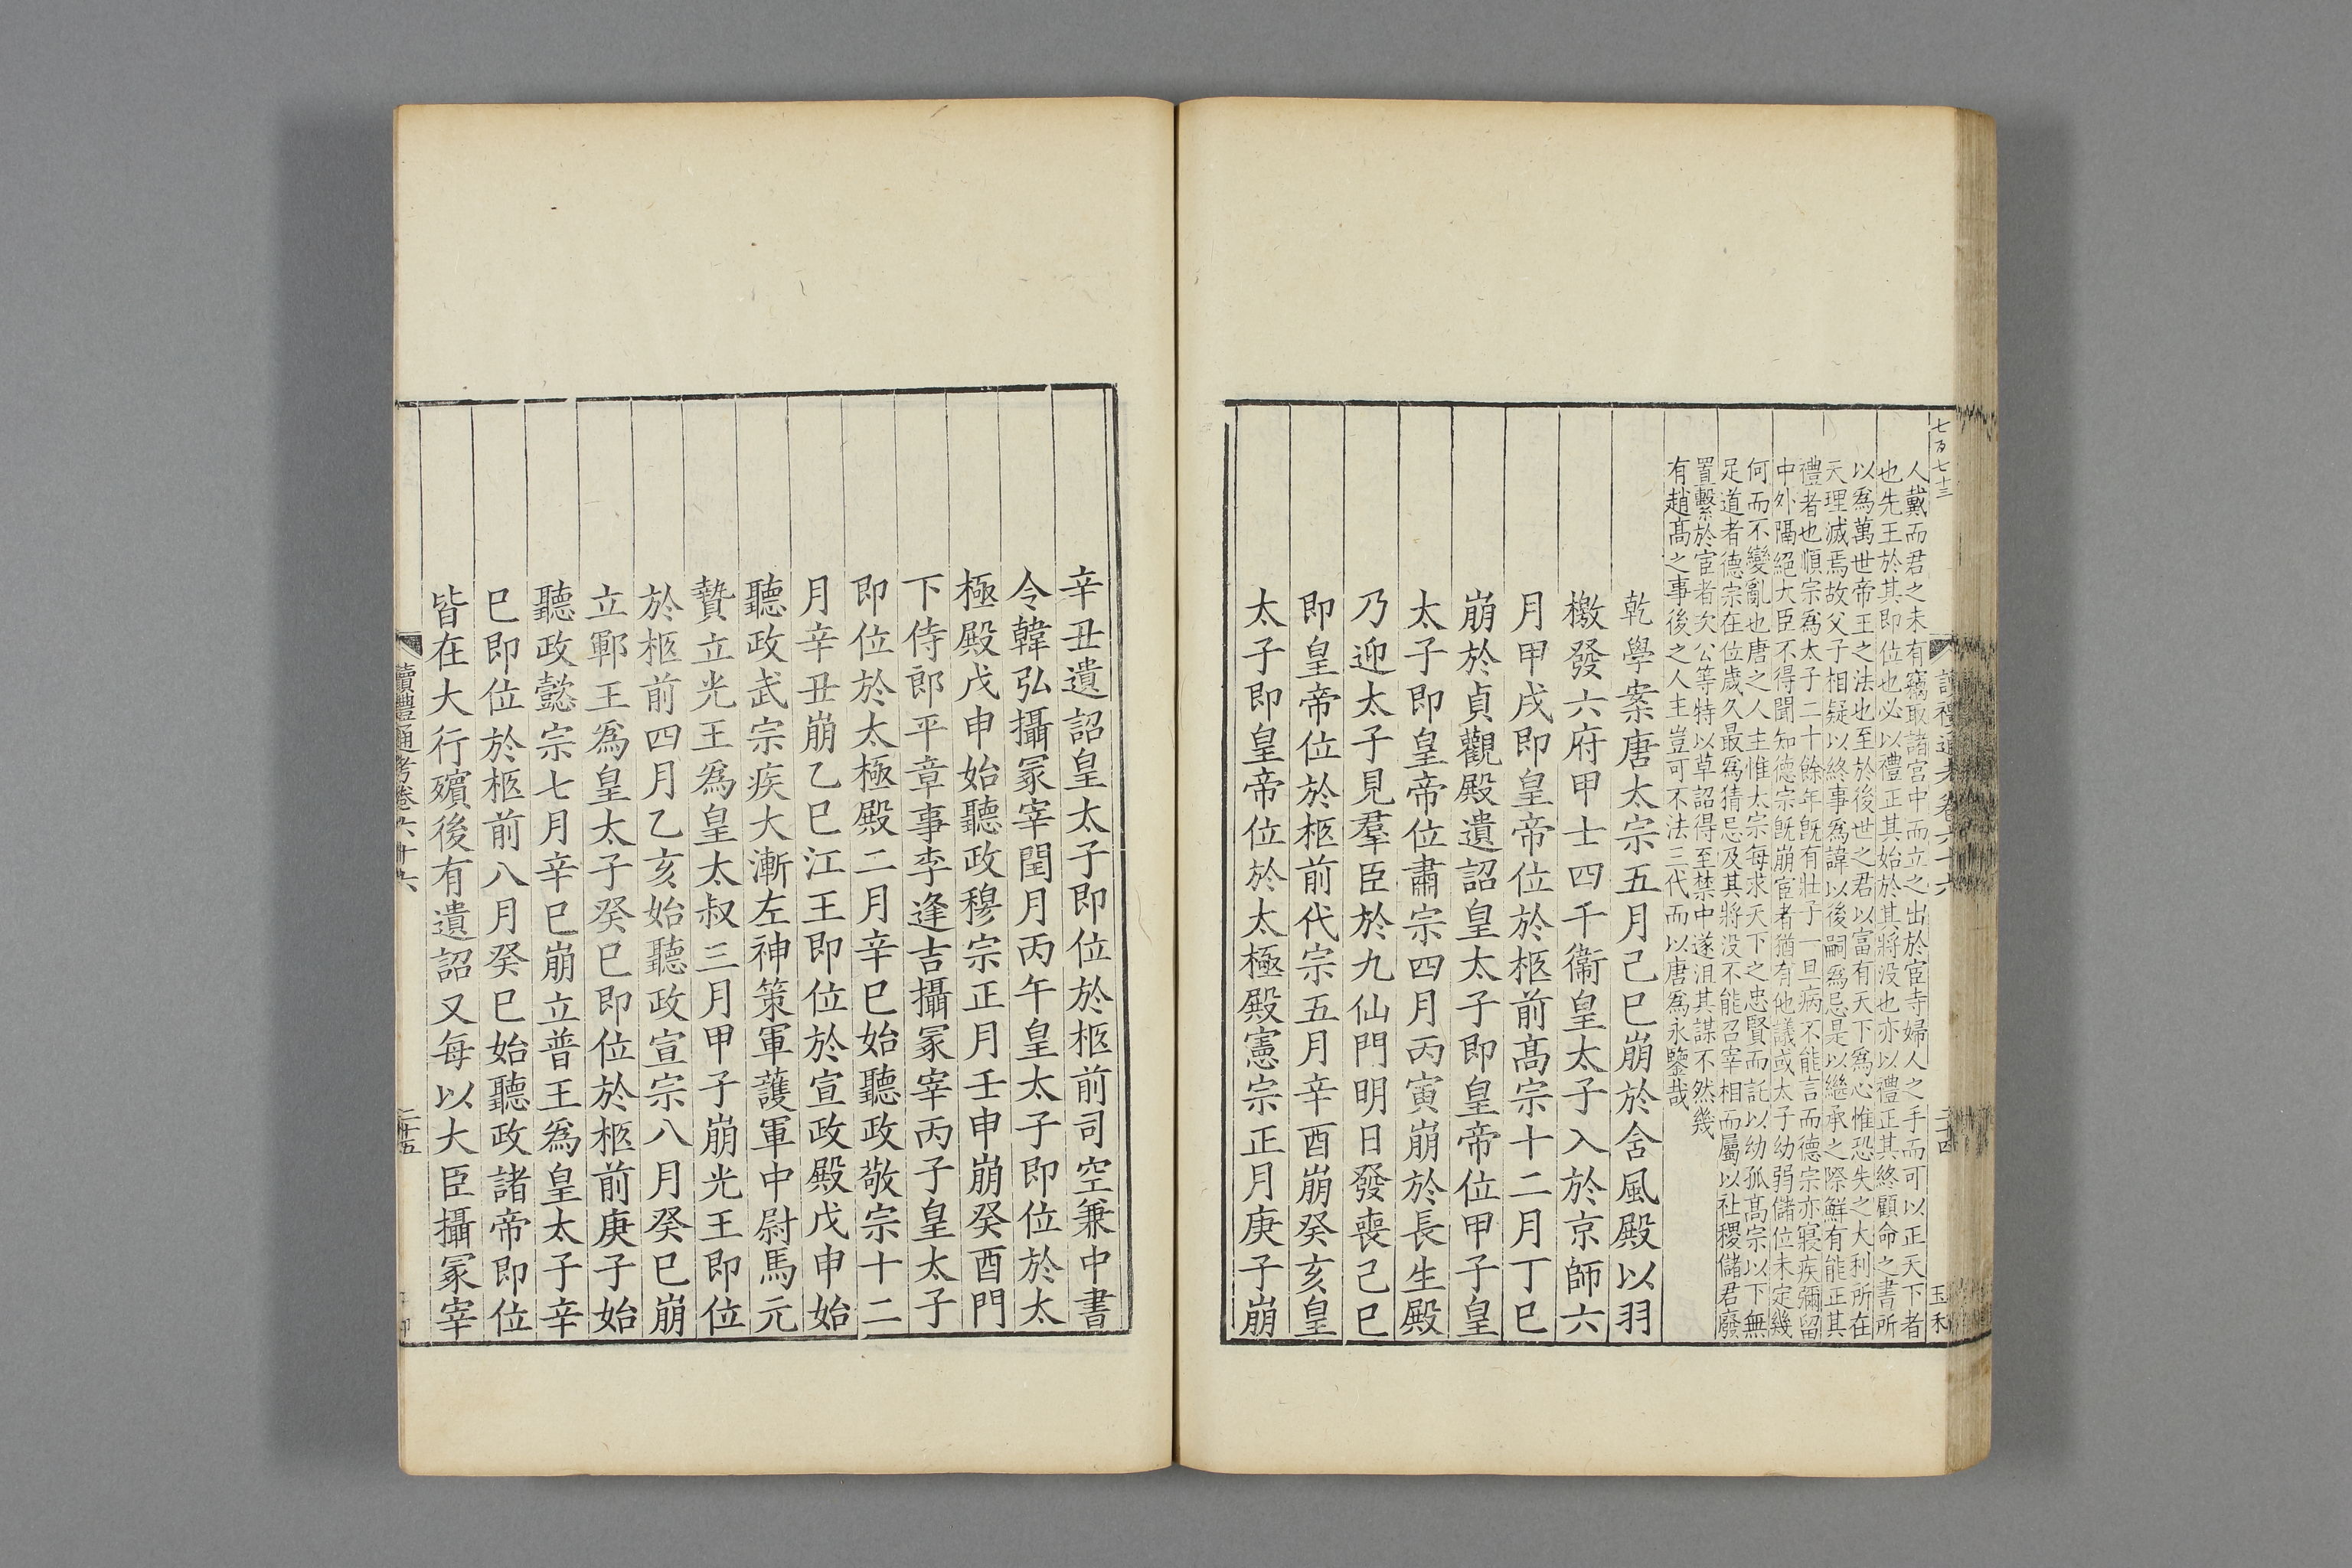 七百七十三
讀禮通考卷六十六
二十四
玉禾
人戴而君之未有竊取諸宮中而立之出於宦寺婦人之手而可以正天下者
也先王於其即位也必以禮正其始於其將没也亦以禮正其終顧命之書所
以爲萬世帝王之法也至於後世之君以富有天下爲心惟恐失之大利所在
天理滅焉故父子相疑以終事爲諱以後嗣爲忌是以繼承之際鮮有能正其
禮者也順宗爲太子二十餘年旣有壯子一旦病不能言而德宗亦寢疾彌留
中外隔絕大臣不得聞知德宗旣崩宦者猶有他議或太子幼弱儲位未定幾
何而不變亂也唐之人主惟太宗每求天下之忠賢而託以幼孤髙宗以下無
足道者德宗在位歲久最爲猜忌及其將没不能召宰相而屬以社稷儲君廢
置繫於宦者次公等特以草詔得至禁中遂沮其謀不然幾
有趙髙之事後之人主豈可不法三代而以唐爲永鑒哉
乾學案唐太宗五月己巳崩於含風殿以羽
檄發六府甲士四千衞皇太子入於京師六
月甲戌即皇帝位於柩前髙宗十二月丁巳
崩於貞觀殿遺詔皇太子即皇帝位甲子皇
太子即皇帝位肅宗四月丙寅崩於長生殿
乃迎太子見羣臣於九仙門明日發喪己巳
即皇帝位於柩前代宗五月辛酉崩癸亥皇
太子即皇帝位於太極殿憲宗正月庚子崩
辛丑遺詔皇太子即位於柩前司空兼中書
令韓弘攝冡宰閏月丙午皇太子即位於太
極殿戊申始聽政穆宗正月壬申崩癸酉門
下侍郎平章事李逢吉攝冡宰丙子皇太子
即位於太極殿二月辛巳始聽政敬宗十二
月辛丑崩乙巳江王即位於宣政殿戊申始
聽政武宗疾大漸左神策軍護軍中尉馬元
贄立光王爲皇太叔三月甲子崩光王即位
於柩前四月乙亥始聽政宣宗八月癸巳崩
立鄆王爲皇太子癸巳即位於柩前庚子始
聽政懿宗七月辛巳崩立普王爲皇太子辛
巳即位於柩前八月癸巳始聽政諸帝即位
皆在大行殯後有遺詔又每以大臣攝冡宰
讀禮通考卷六十六
二十五